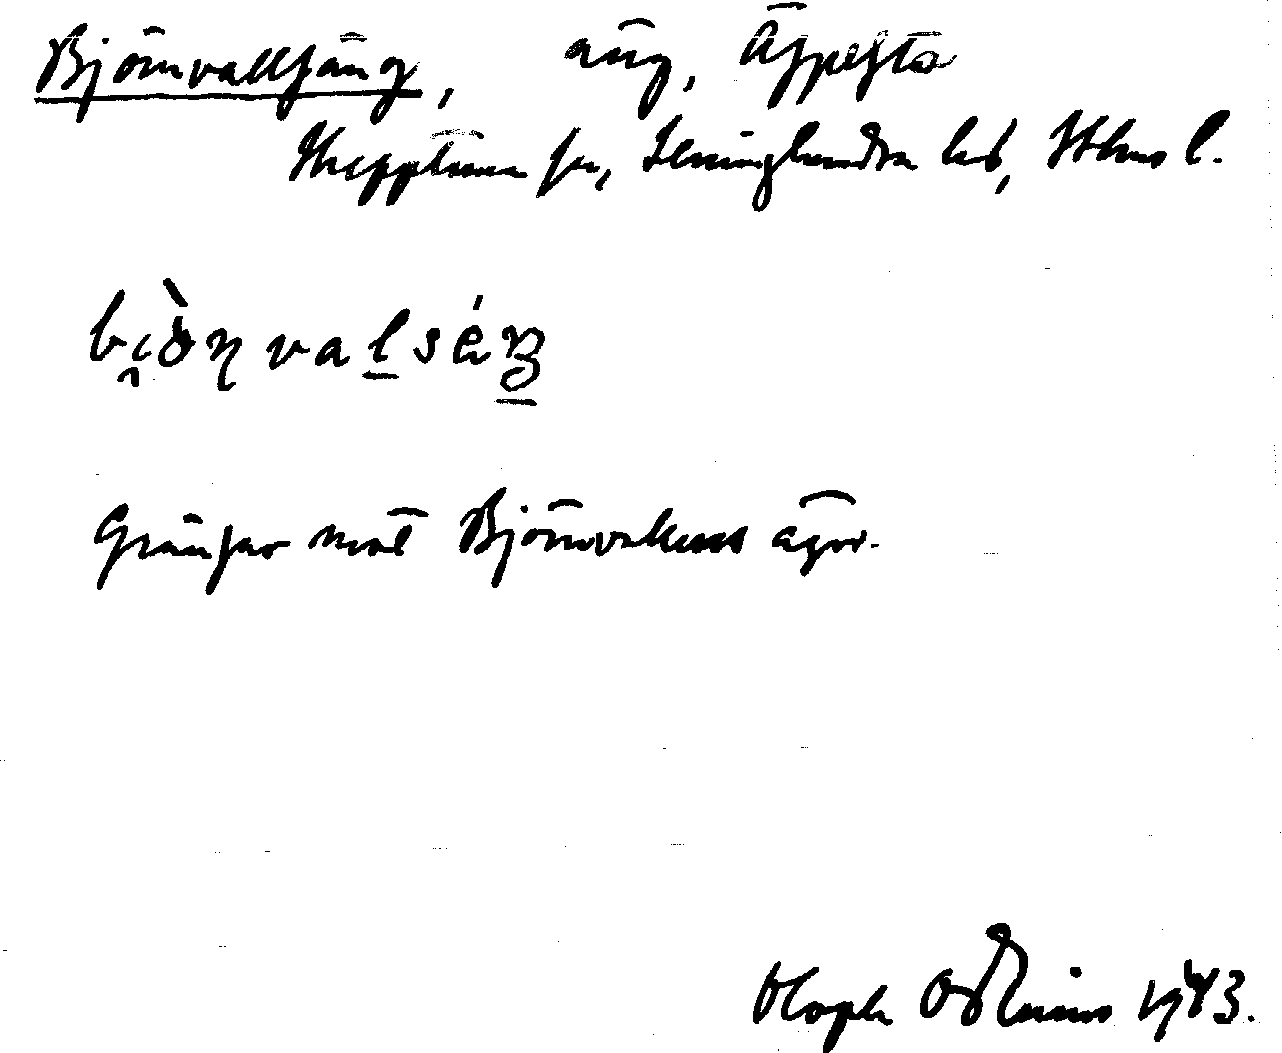 Björnvallsäng, äng, Äspesta
Skepptuna sn, Seminghundra hd, Sthms l.
Gränsar mot Björnvallens ägor.
Oloph Odenius 1943.